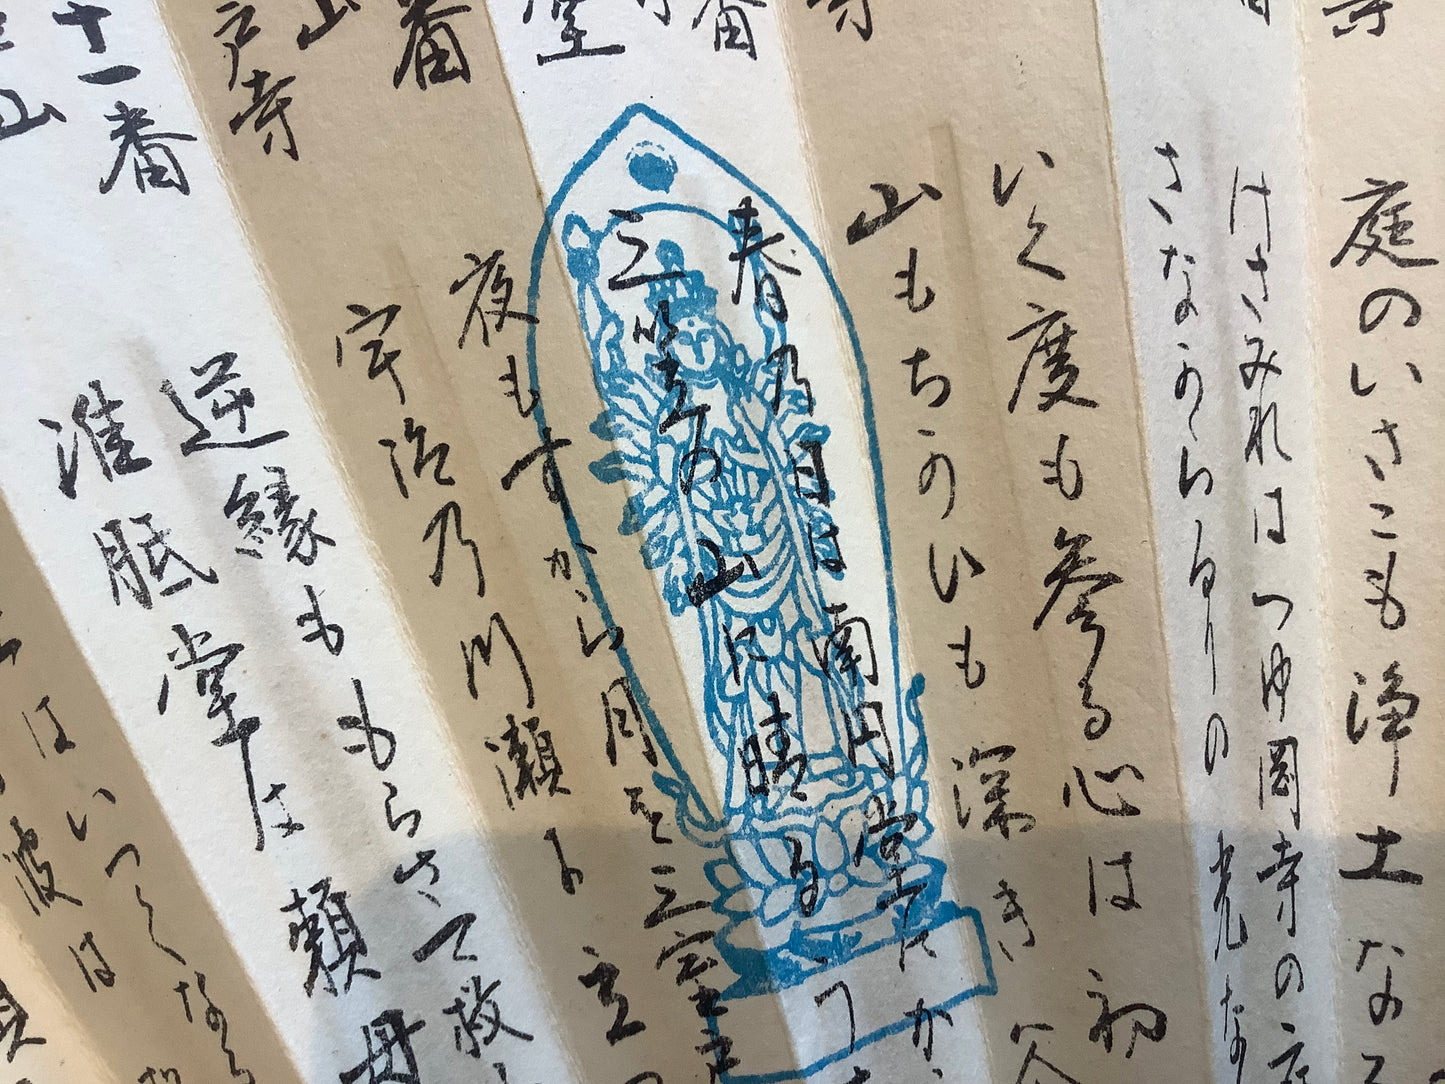 庭のいさこも浄土なる
けさみれはつゆ岡寺の庭
さなからるりの光な
いく度も参る心は初
山もちかひも深き谷
番
堂
春乃日は南円堂にかゝ
三笠の山に晴るゝう
番
山
戸寺
夜もすから月を三室戸
宇治乃川瀬に立つ
十一番
山
逆縁ももらさて救
准胝堂は頼母
はいつくなる
波は